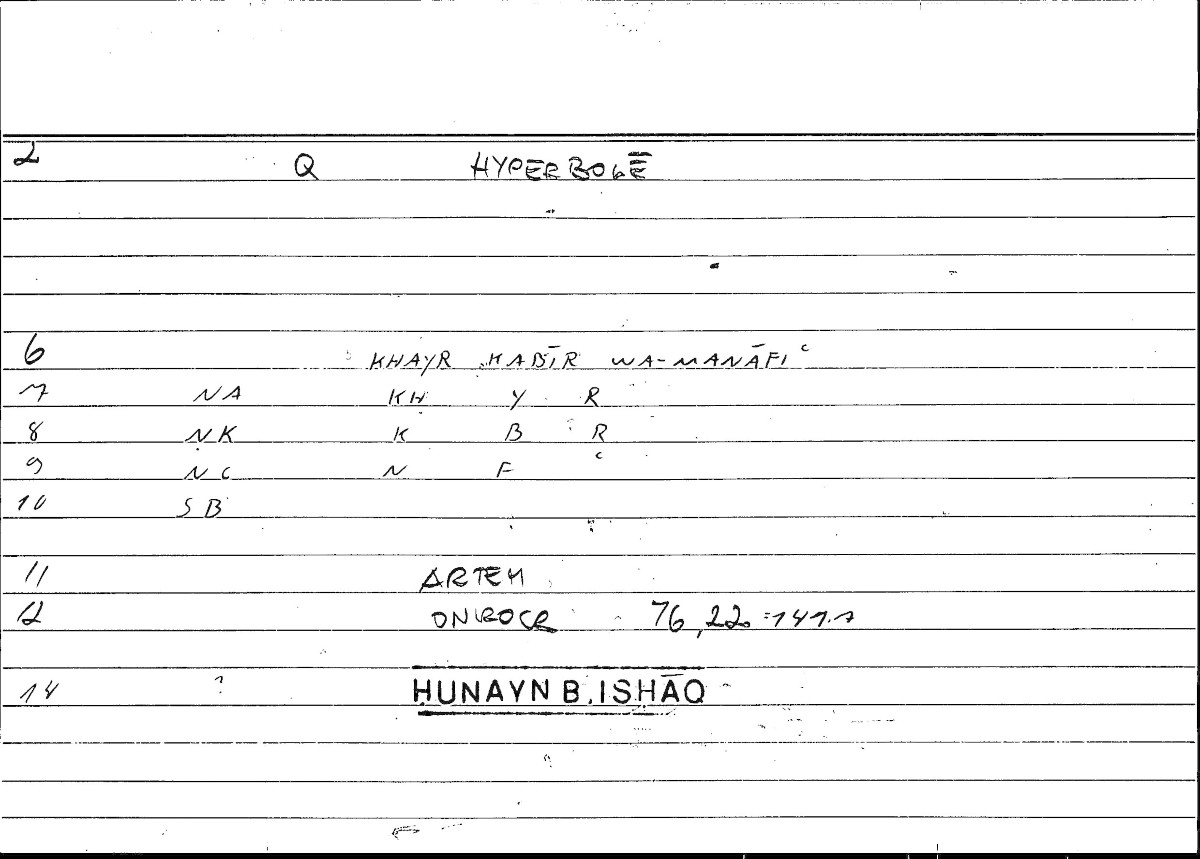 2 Q HYPERBOLĒ
6 KHAYR KABĪR WA-MANĀFIʿ
7 NA KH Y R
8 NK K B R
9 NC N F ʿ
10 SB
11 ARTEM
12 ONIROCR 76,22 = 141.7
14 ? ḤUNAYN B. ISḤĀQ